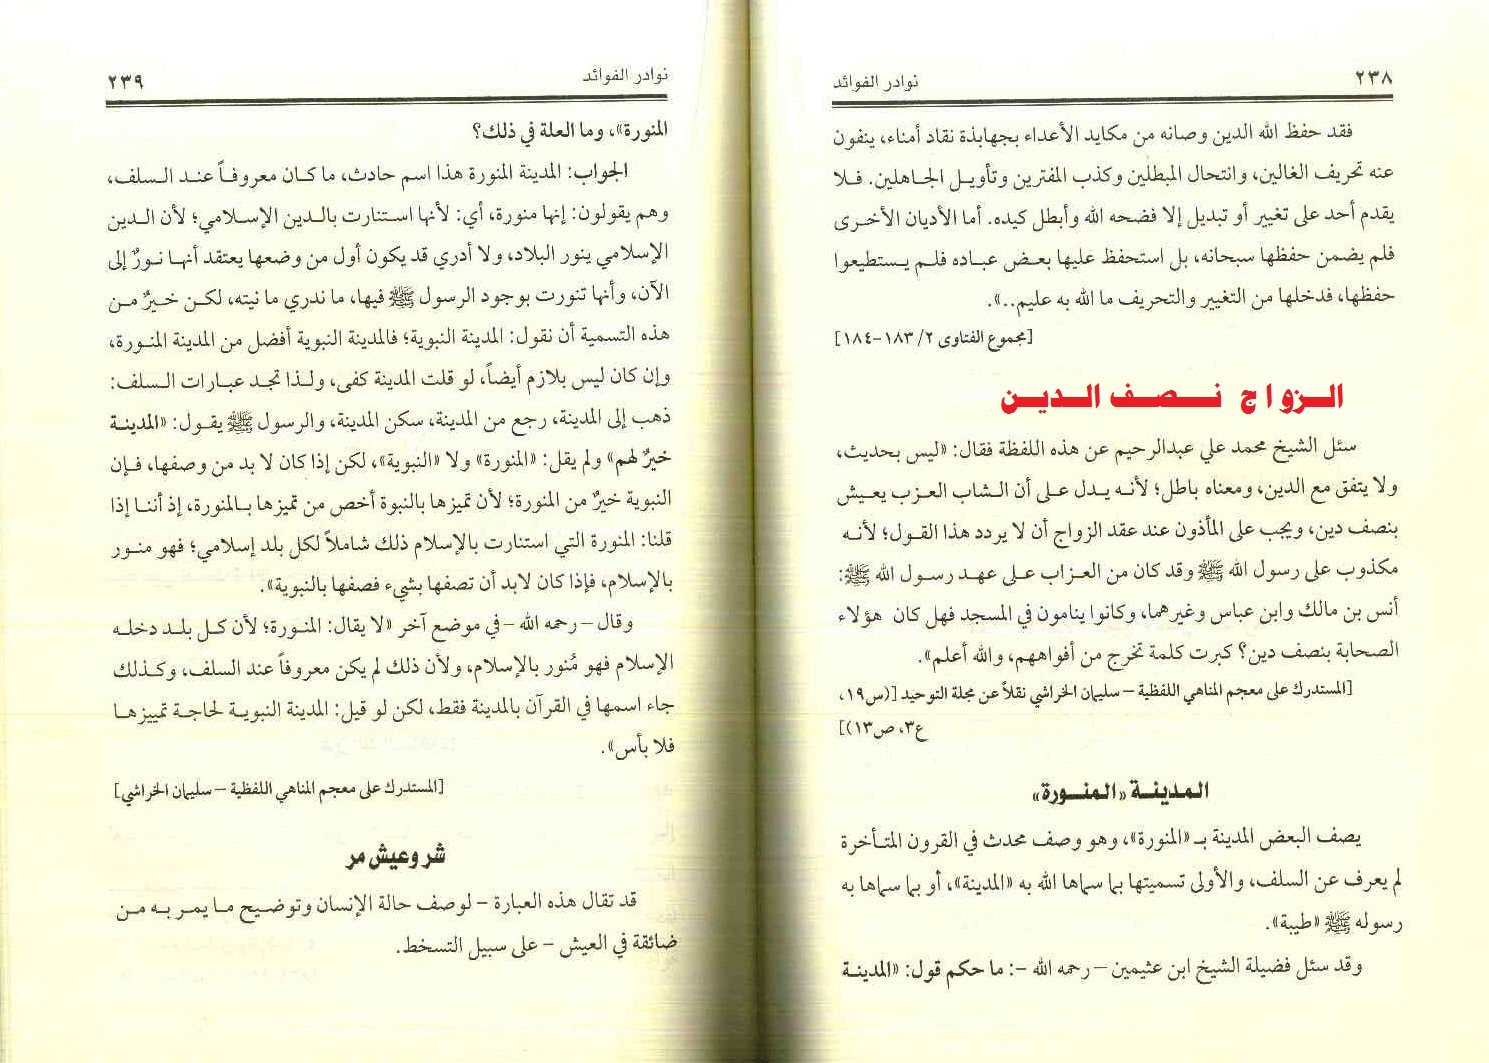 ٢٣٨
نوادر الفوائد
فقد حفظ الله الدين وصانه من مكايد الأعداء بجهابذة نقاد أمناء، ينفون
عنه تحريف الغالين، وانتحال المبطلين وكذب المفترين وتأويل الجاهلين. فلا
يقدم أحد على تغيير أو تبديل إلا فضحه الله وأبطل كيده. أما الأديان الأخرى
فلم يضمن حفظها سبحانه، بل استحفظ عليها بعض عباده فلم يستطيعوا
حفظها، فدخلها من التغيير والتحريف ما الله به عليم..».
[مجموع الفتاوى ٢/ ١٨٣-١٨٤]
الزواج نصف الدين
سئل الشيخ محمد علي عبدالرحيم عن هذه اللفظة فقال: «ليس بحديث،
ولا يتفق مع الدين، ومعناه باطل؛ لأنه يدل على أن الشاب العزب يعيش
بنصف دين، ويجب على المأذون عند عقد الزواج أن لا يردد هذا القول؛ لأنه
مكذوب على رسول الله ﷺ وقد كان من العزاب على عهد رسول الله ﷺ:
أنس بن مالك وابن عباس وغيرهما، وكانوا ينامون في المسجد فهل كان هؤلاء
الصحابة بنصف دين؟ كبرت كلمة تخرج من أفواههم، والله أعلم».
[المستدرك على معجم المناهي اللفظية – سليمان الخراشي نقلاً عن مجلة التوحيد [(س١٩،
ع٣، ص١٣)]
المدينة «المنورة»
يصف البعض المدينة بـ «المنورة»، وهو وصف محدث في القرون المتأخرة
لم يعرف عن السلف، والأولى تسميتها بما سماها الله به «المدينة»، أو بما سماها به
رسوله ﷺ «طيبة».
وقد سئل فضيلة الشيخ ابن عثيمين – رحمه الله –: ما حكم قول: «المدينة
نوادر الفوائد
٢٣٩
المنورة»، وما العلة في ذلك؟
الجواب: المدينة المنورة هذا اسم حادث، ما كان معروفاً عند السلف،
وهم يقولون: إنها منورة، أي: لأنها استنارت بالدين الإسلامي؛ لأن الدين
الإسلامي ينور البلاد، ولا أدري قد يكون أول من وضعها يعتقد أنها نورٌ إلى
الآن، وأنها تنورت بوجود الرسول ﷺ فيها، ما ندري ما نيته، لكن خيرٌ من
هذه التسمية أن نقول: المدينة النبوية؛ فالمدينة النبوية أفضل من المدينة المنورة،
وإن كان ليس بلازم أيضاً، لو قلت المدينة كفى، ولذا تجد عبارات السلف:
ذهب إلى المدينة، رجع من المدينة، سكن المدينة، والرسول ﷺ يقول: «المدينة
خيرٌ لهم» ولم يقل: «المنورة» ولا «النبوية»، لكن إذا كان لا بد من وصفها، فإن
النبوية خيرٌ من المنورة؛ لأن تميزها بالنبوة أخص من تميزها بالمنورة، إذ أننا إذا
قلنا: المنورة التي استنارت بالإسلام ذلك شاملاً لكل بلد إسلامي؛ فهو منور
بالإسلام، فإذا كان لابد أن تصفها بشيء فصفها بالنبوية».
وقال – رحمه الله – في موضع آخر «لا يقال: المنورة؛ لأن كل بلد دخله
الإسلام فهو مُنور بالإسلام، ولأن ذلك لم يكن معروفاً عند السلف، وكذلك
جاء اسمها في القرآن بالمدينة فقط، لكن لو قيل: المدينة النبوية لحاجة تمييزها
فلا بأس».
[المستدرك على معجم المناهي اللفظية – سليمان الخراشي]
شر وعيش مر
قد تقال هذه العبارة – لوصف حالة الإنسان وتوضيح ما يمر به من
ضائقة في العيش – على سبيل التسخط.